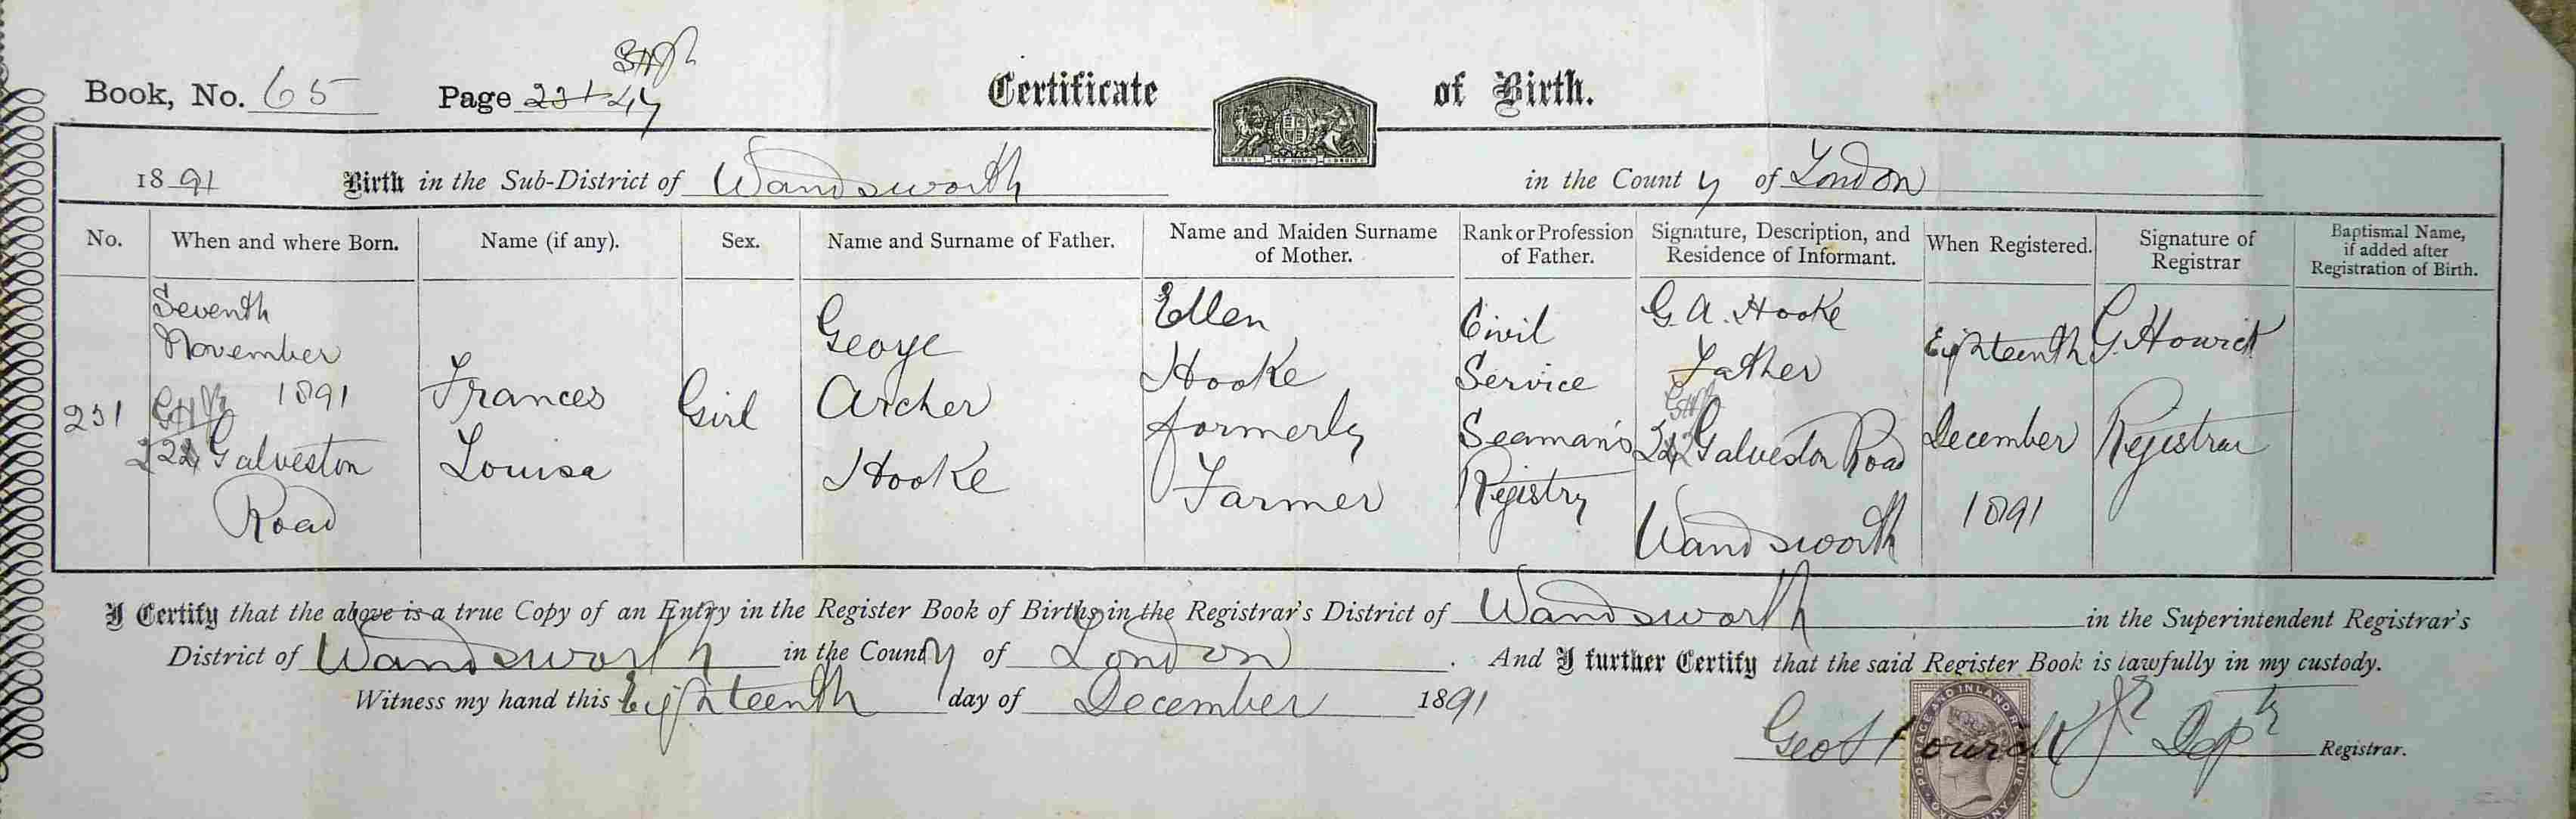 Book, No. 65 Page 231 47
Certificate of Birth.
1891 Birth in the Sub-District of Wandsworth in the County of London
No. When and where Born. Name (if any). Sex. Name and Surname of Father. Name and Maiden Surname of Mother. Rank or Profession of Father. Signature, Description, and Residence of Informant. When Registered. Signature of Registrar Baptismal Name, if added after Registration of Birth.
231
Seventh
November
1891
Galveston
Road
Frances
Louisa
Girl
George
Archer
Hooke
Ellen
Hooke
formerly
Farmer
Civil
Service
Seaman's
Registry
G. A. Hooke
Father
Galveston Road
Wandsworth
Eighteenth
December
1891
G. Howick
Registrar
I Certify that the above is a true Copy of an Entry in the Register Book of Births in the Registrar's District of Wandsworth in the Superintendent Registrar's
District of Wandsworth in the County of London. And I further Certify that the said Register Book is lawfully in my custody.
Witness my hand this Eighteenth day of December 1891
Geo Howick Jr Depty Registrar.